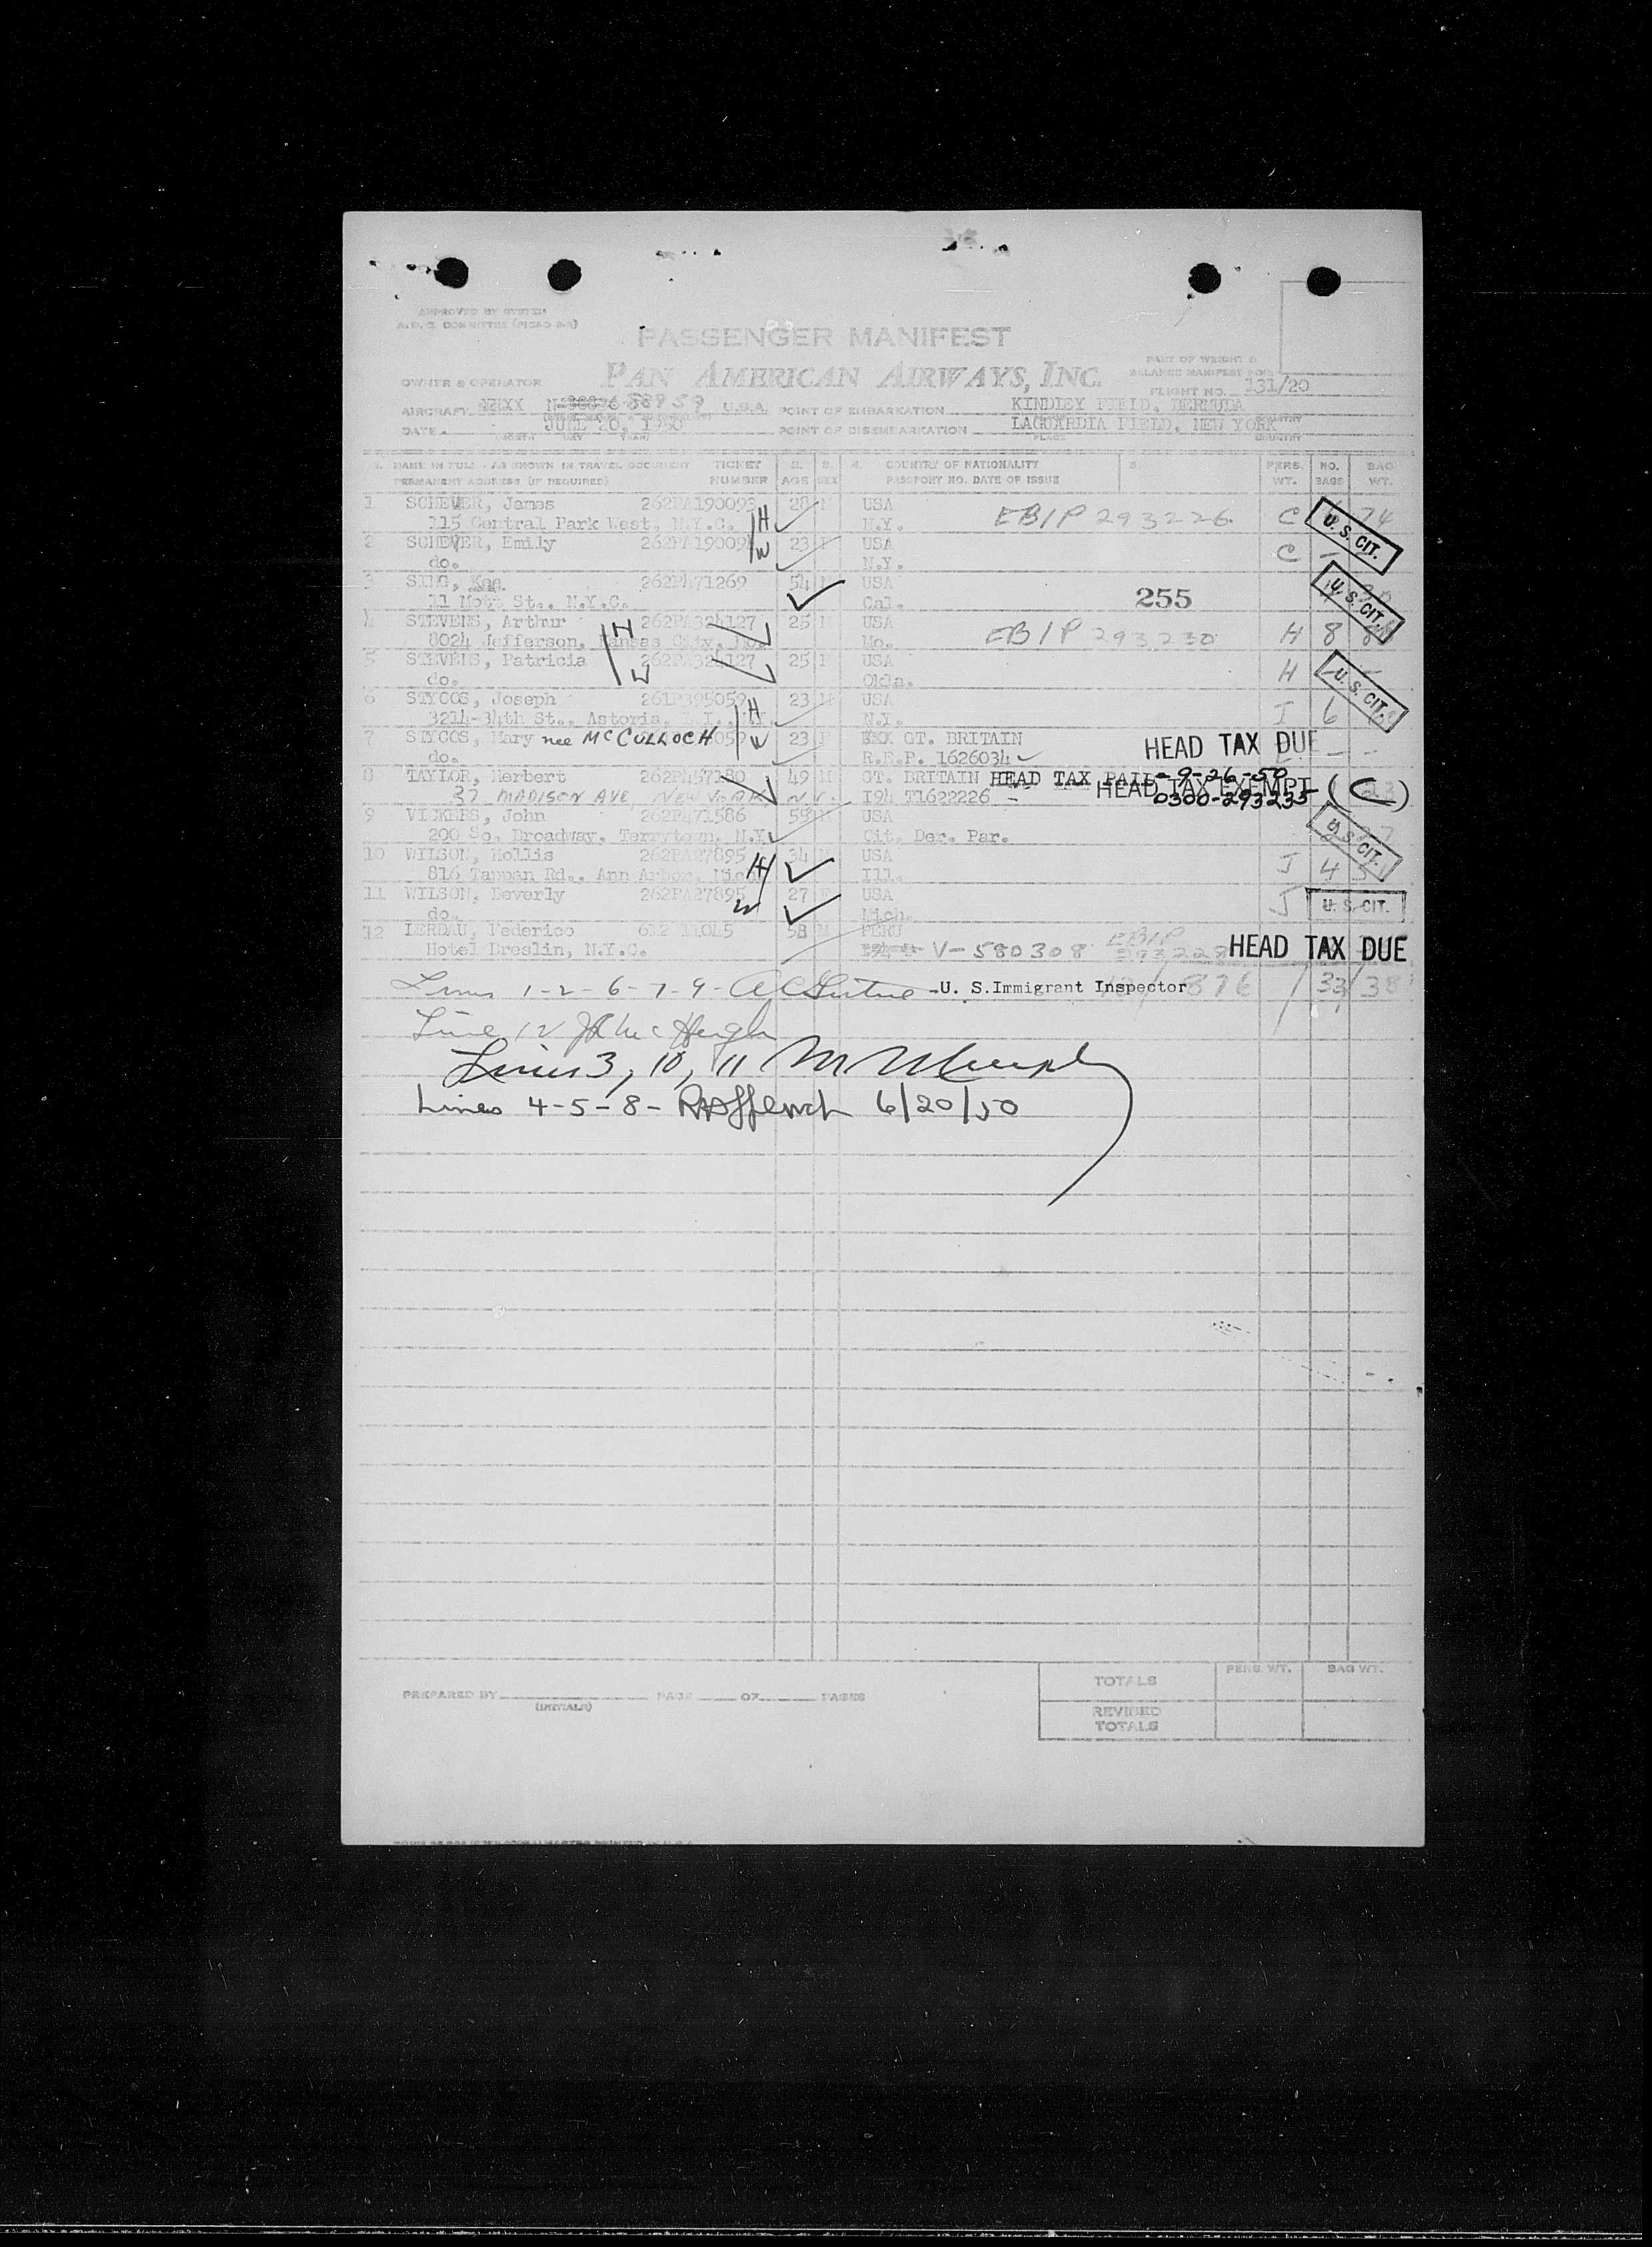 APPROVED BY SYSTEM
A.D.C. COMMITTEE
PASSENGER MANIFEST
PAN AMERICAN AIRWAYS, INC.
PART OF WEIGHT &
BALANCE MANIFEST FOR
OWNER & OPERATOR
FLIGHT NO. 131/20
AIRCRAFT 88959 U.S.A. POINT OF EMBARKATION KINDLEY FIELD, BERMUDA
DATE JUNE 20, 1950 POINT OF DISEMBARKATION LAGUARDIA FIELD, NEW YORK
(MONTH DAY YEAR) PLACE COUNTRY
1. NAME IN FULL - AS SHOWN IN TRAVEL DOCUMENT TICKET 2. 3. 4. COUNTRY OF NATIONALITY 5. PERS. NO. BAG
PERMANENT ADDRESS (IF REQUIRED) NUMBER AGE SEX PASSPORT NO. DATE OF ISSUE WT. BAGS WT.
1 SCHEUER, James 262PA190093 28 M USA
115 Central Park West, N.Y.C. H N.Y. EB1P 293226 C 74
U. S. CIT.
2 SCHEUER, Emily 23 F USA
do. W N.Y. C
3 SING, Kee 262P471269 54 M USA
11 Mott St., N.Y.C. Cal. 255
U. S. CIT.
4 STEVENS, Arthur 262PA324127 25 M USA
8024 Jefferson, Kansas City, Mo. H Mo. EB1P 293230 H 8
5 STEVENS, Patricia 262PA324127 25 F USA
do. W Okla. H
U. S. CIT.
6 STYCOS, Joseph 261P395059 23 M USA
3214-34th St., Astoria, L.I., N.Y. H N.Y. I 6
7 STYCOS, Mary nee McCULLOCH W 23 F GT. BRITAIN HEAD TAX DUE
do. R.E.P. 1626034
8 TAYLOR, Herbert 262P457180 49 M GT. BRITAIN HEAD TAX PAID 9-26-50
37 MADISON AVE, NEW YORK N.Y. I94 T1622226 HEAD TAX EXEMPT (C)
0300-293235
9 VICKERS, John 262P471586 59 M USA
200 So. Broadway, Terrytown, N.Y. Cit. Der. Par.
U. S. CIT.
10 WILSON, Hollis 262PA27895 34 M USA
816 Tappan Rd., Ann Arbor, Mich. H Ill. J 4
11 WILSON, Beverly 262PA27895 27 F USA
do. W Mich. J U. S. CIT.
12 LERDAU, Federico 612 11045 58 M PERU EB1P
Hotel Breslin, N.Y.C. V-580308 293228 HEAD TAX DUE
Lines 1-2-6-7-9- -U. S.Immigrant Inspector 876 33 38
Line 12
Lines 3, 10, 11 M Murphy
Lines 4-5-8- 6/20/50
TOTALS PERS. WT. BAG WT.
PREPARED BY PAGE OF PAGES
(INITIALS)
REVISED
TOTALS